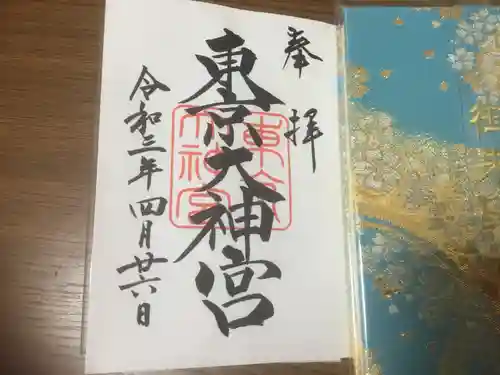 奉拝
東京大神宮
令和三年四月廿六日
東京大神宮